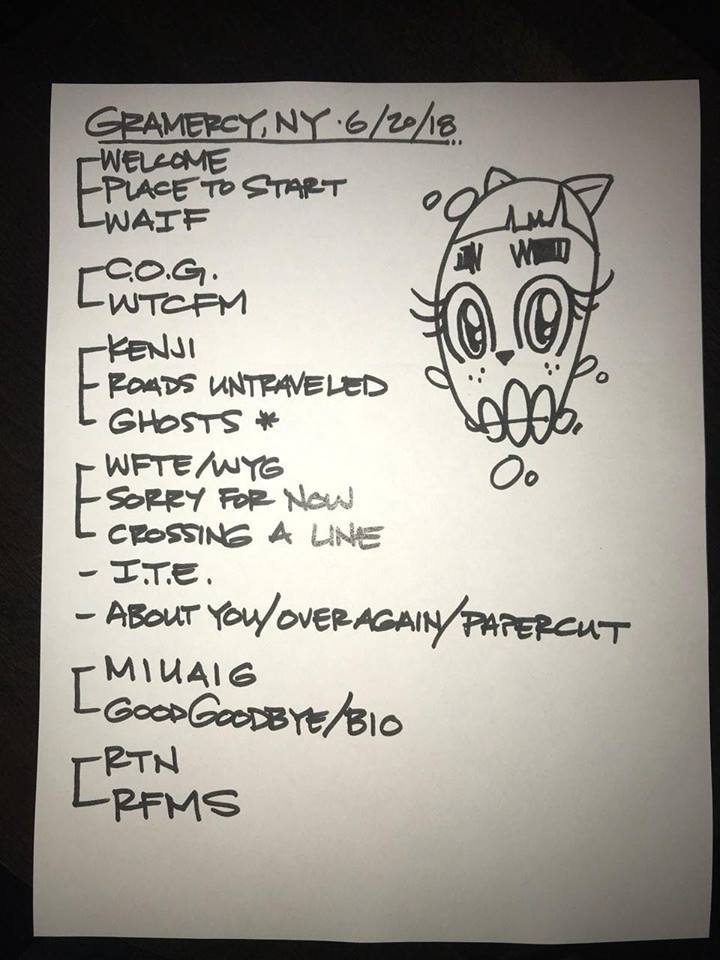 GRAMERCY, NY · 6/20/18...
WELCOME
PLACE TO START
WAIF
C.O.G.
WTCFM
KENJI
ROADS UNTRAVELED
GHOSTS *
WFTE/WYG
SORRY FOR NOW
CROSSING A LINE
- I.T.E.
- ABOUT YOU/OVER AGAIN/PAPERCUT
MIUAIG
GOOD GOODBYE/BIO
RTN
RFMS